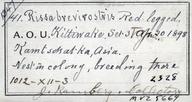 41. Rissa brevirostris Red legged,
A.O.U. Kittiwake, Set 5 Apr 20 1898
Kamtschatka, Asia.
Nest in colony, breeding there
1012-X11-3 2328
Collector
MVZ 5669